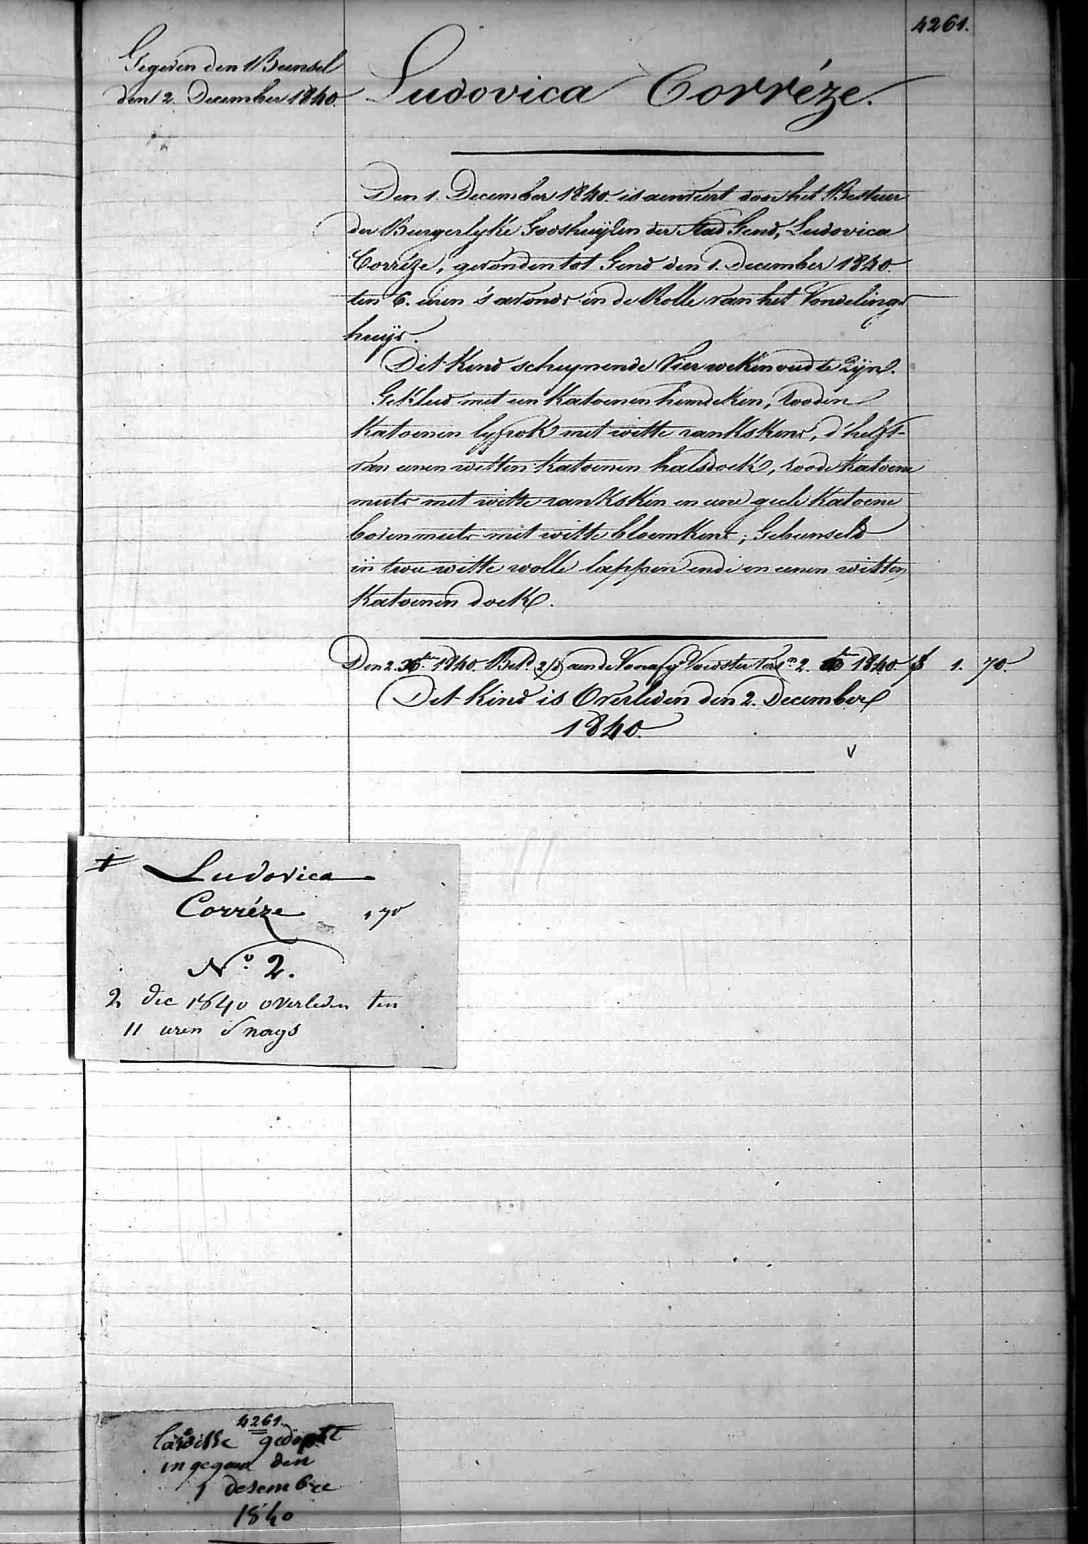 4261.
Gegeven den 1 Bunsel
den 2. December 1840.
Ludovica Corréze.
Den 1. December 1840. is aenveirt door het Bestuer
der Burgerlyke Godshuyzen der Stad Gend, Ludovica
Corréze, gevonden tot Gend den 1. December 1840.
ten 6. uren 's avonds in de Rolle van het Vondelings
huijs.
Dit Kind scheynende Vier weken oud te Zijn.
Gekleed met een Katoenen hemdeken, rooden
Katoenen lyfrok met witte rankskens, d'helft
van eenen witten Katoenen halsdoek, roode Katoene
muts met witte ranksken en eene geele Katoene
bovenmuts met witte bloemkens; Gebunseld
in twee witte wolle lappen ende in eenen witten
Katoenen doek.
Den 2. Xb. 1840. Bet. aen de Voedster 2. 1840 f 1. 70.
Dit Kind is Overleden den 2. December
1840.
v
Ludovica
Corréze 1 70
No. 2.
2 dec 1840 overleden ten
11 uren s nags
4261.
gedopt
in gegaen den
1 desembre
1840